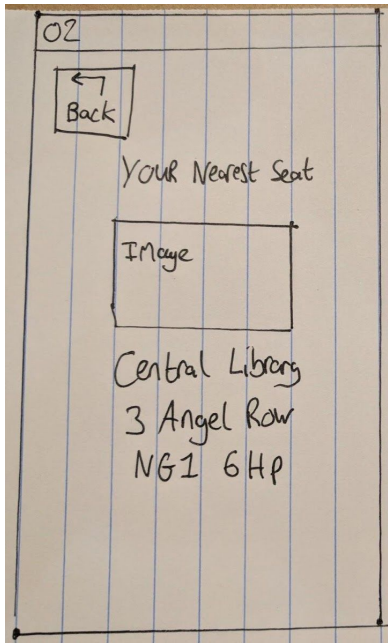 02
Back
YouR Nearest Seat
IMage
Central Library
3 Angel Row
NG1 6HP